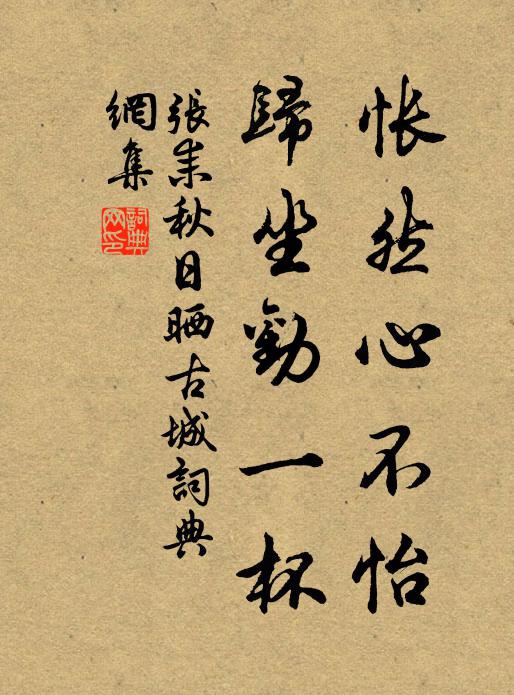 悵然心不怡
歸坐勸一杯
張耒秋日晒古城詞典
網集
詞典
网印